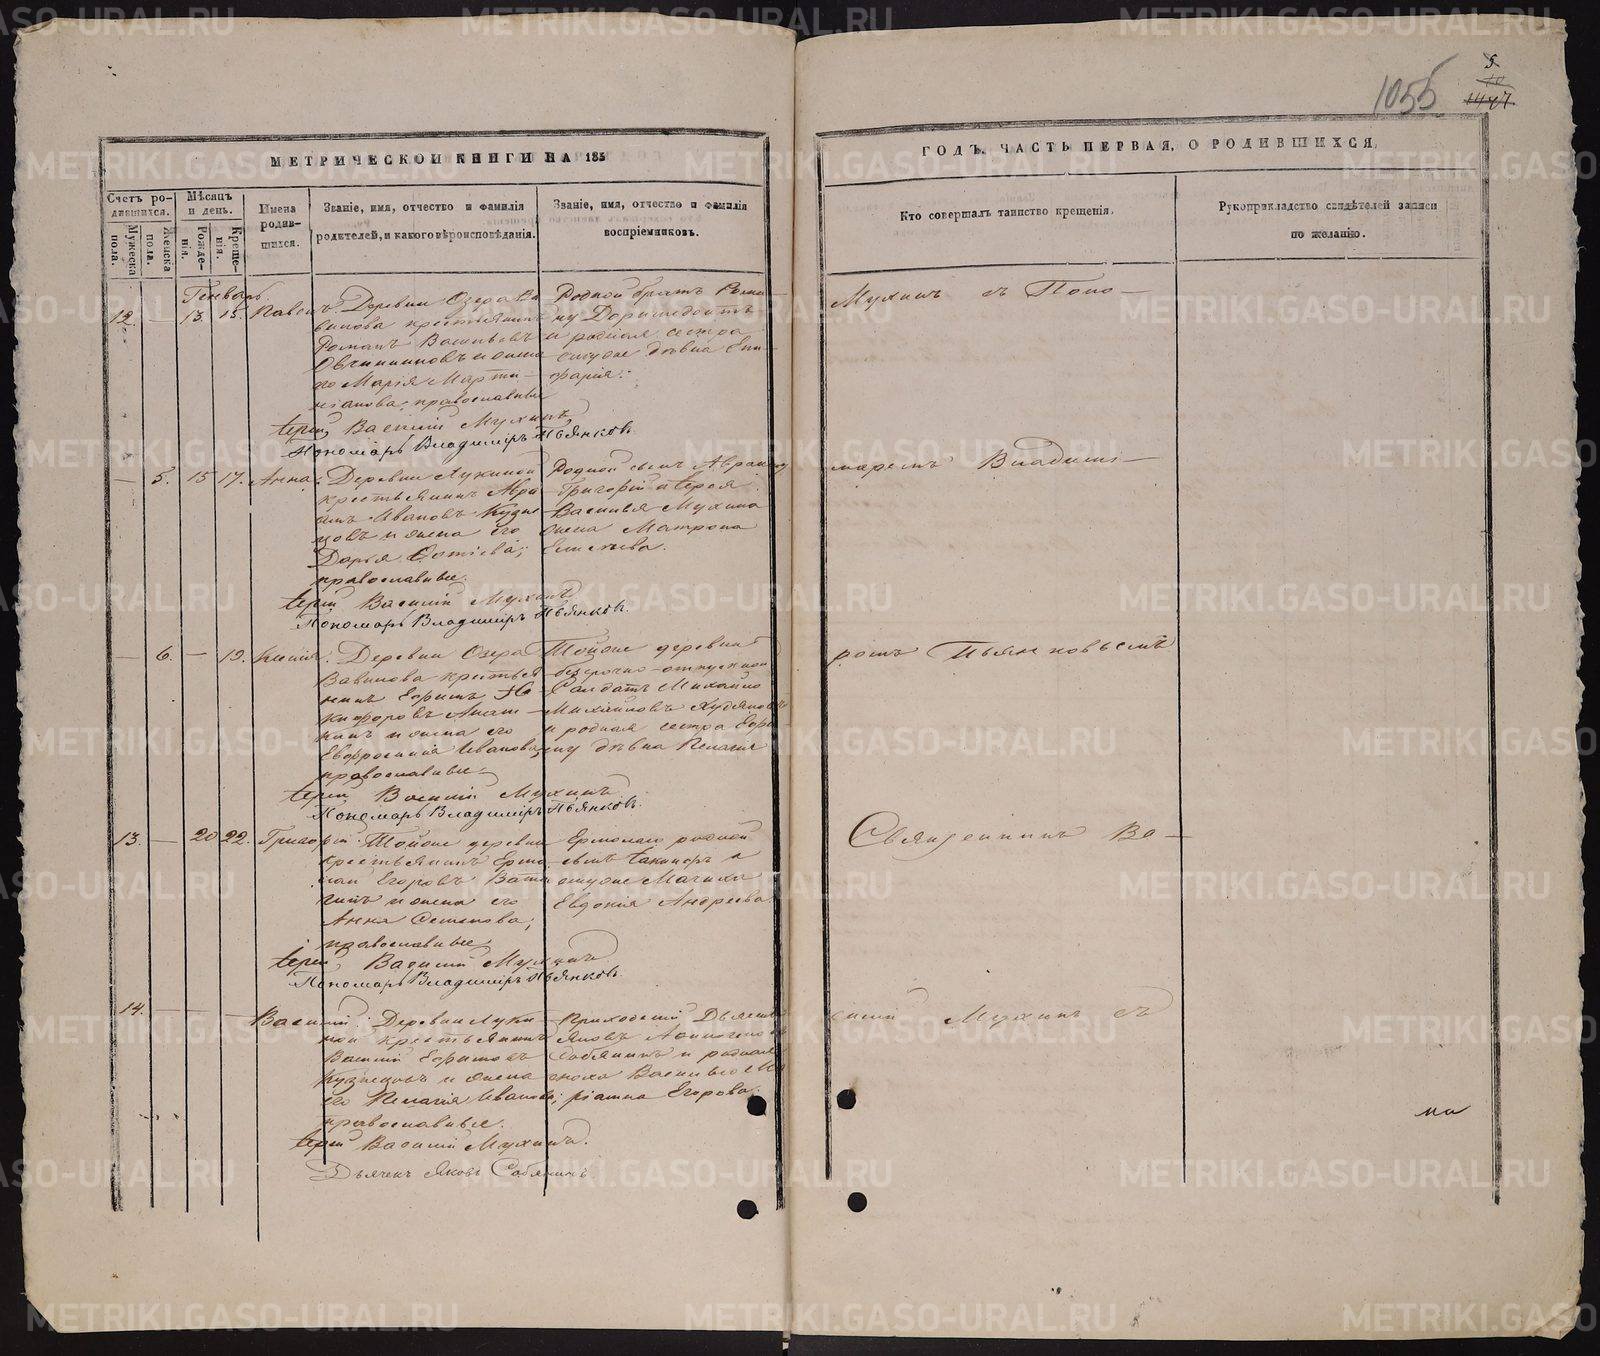 1055
5
МЕТРИЧЕСКОЙ КНИГИ НА 185
ГОДЪ, ЧАСТЬ ПЕРВАЯ, О РОДИВШИХСЯ,
Счетъ родившихся.
Мужеска пола.
Женска пола.
Мѣсяцъ и день.
Рожденія.
Крещенія.
Имена родившихся.
Званіе, имя, отчество и фамилія родителей, и какого вѣроисповѣданія.
Званіе, имя, отчество и фамилія воспріемниковъ.
Кто совершалъ таинство крещенія.
Рукоприкладство свидѣтелей записи по желанію.
Генварь
12. — 13. 15. Павелъ
Деревни Озера Ва-
винова крестьянинъ
Романъ Васильевъ
Овчинниковъ и жена
его Марія Марти-
ніанова, православные
Родной братъ Рома-
ну Доримедонтъ
и родная сестра
ему же дѣвка Епи-
фарія.
Мухинъ съ Поно-
Іерей Василій Мухинъ
Пономарь Владиміръ Пьянковъ.
— 5. 15 17. Анна.
Деревни Лукиной
крестьянинъ Авра-
амъ Ивановъ Кузне-
цовъ и жена его
Дарья Фотіева;
православные.
Родной сынъ Аврааму
Григорій и Іерея
Василья Мухина
жена Матрона
Елисѣева.
маремъ Владимі-
Іерей Василій Мухинъ
Пономарь Владиміръ Пьянковъ.
— 6. — 19. Ксенія.
Деревни Озера
Вавинова крестья-
нинъ Ефимъ Ни-
кифоровъ
и жена его
Евфросинія Иванова,
православные.
Тойже деревни
безсрочно-отпускной
Салдатъ Михайло
Михайловъ Худяковъ
и родная сестра Ефи-
му дѣвка Пелагія
ромъ Пьянковымъ
Іерей Василій Мухинъ
Пономарь Владиміръ Пьянковъ.
13. — 20 22. Григорій.
Тойже деревни
крестьянинъ Ермо-
лай Егоровъ
и жена его
Анна Семенова;
православные.
Ермолаю родной
сынъ
Евдокія Андреева
Священникъ Ва-
Іерей Василій Мухинъ
Пономарь Владиміръ Пьянковъ.
14. — — — Василій.
Деревни Луки-
ной крестьянинъ
Василій Ефимовъ
Кузнецовъ и жена
его Пелагія Иванова;
православные.
Приходскій Дьячекъ
Яковъ
Собянинъ и родная
сноха Василью Ма-
ріамна Егорова.
силій Мухинъ съ
Іерей Василій Мухинъ.
Дьячекъ Яковъ Собянинъ
по
METRIKI.GASO-URAL.RU